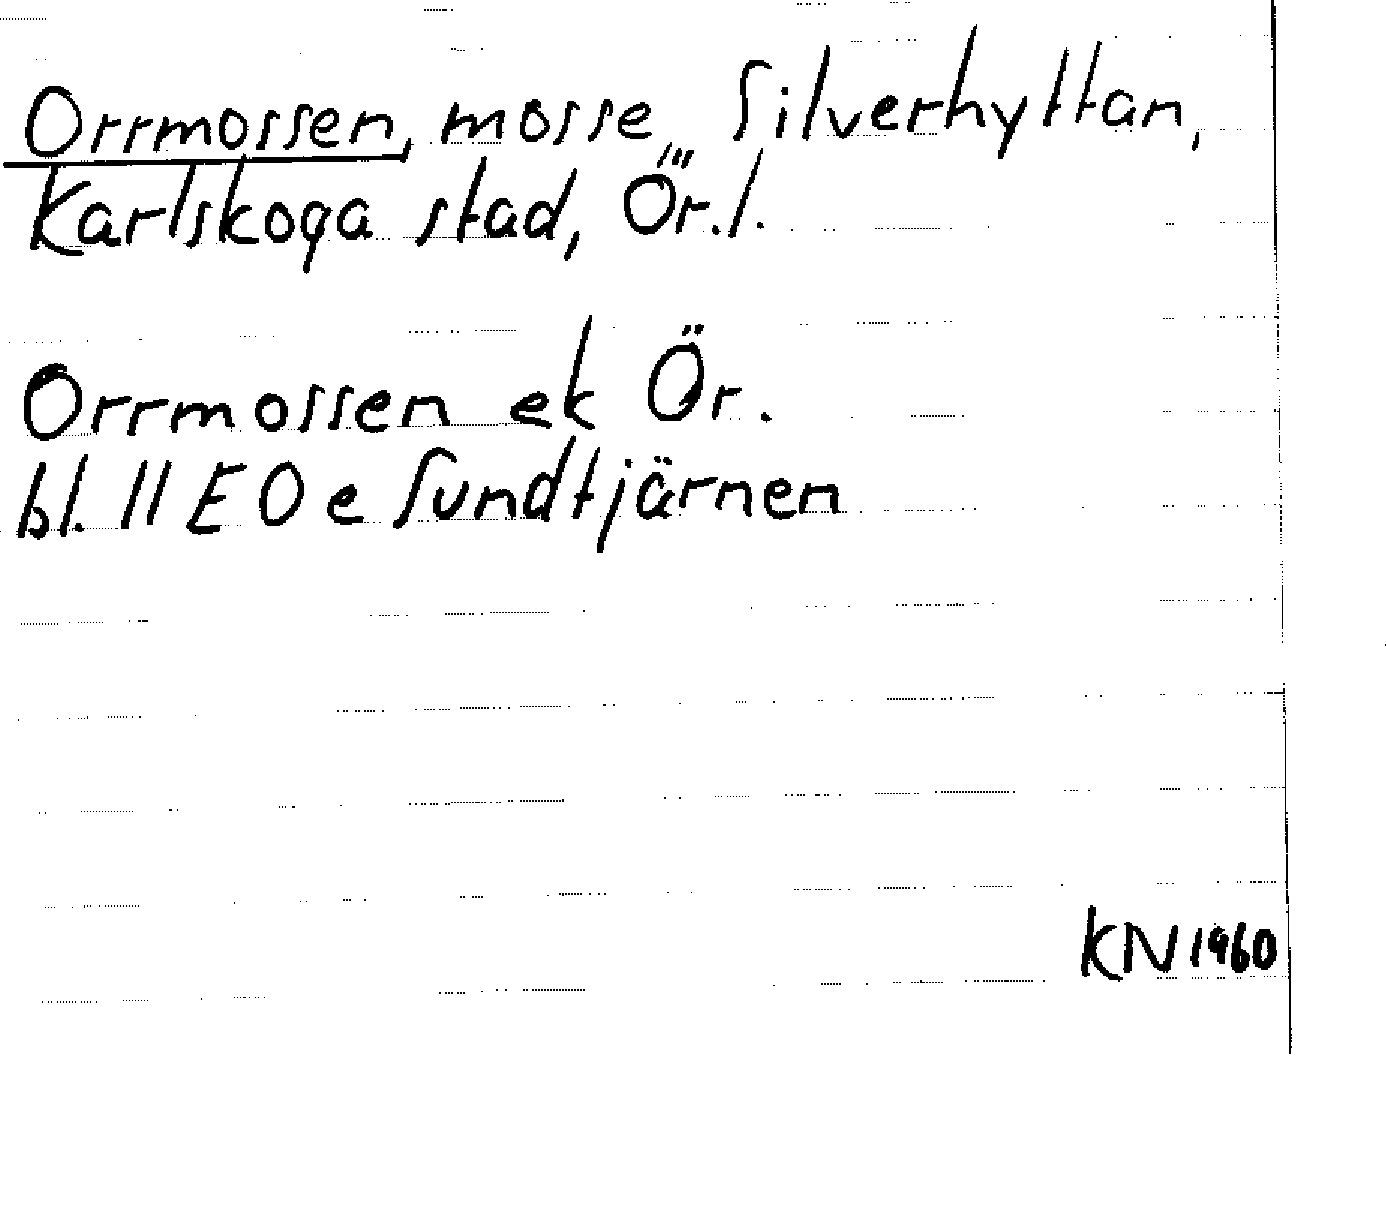 Orrmossen, mosse, Silverhyttan,
Karlskoga stad, Ör.l.
Orrmossen ek Ör.
bl. 11 EO e Sundtjärnen
KN 1960